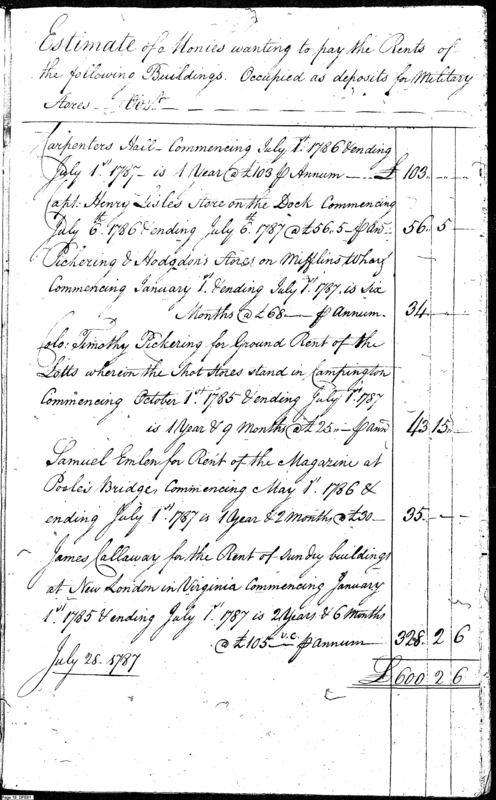 Estimate of a Monies wanting to pay the Rents of
the following Buildings. Occupied as deposits for Military
Stores.
Carpenters Hall – Commencing July 1st. 1786 & ending
July 1st 1787 – is 1 Year @ £103 ⅌ Annum – £ 103. –
Capt: Henry Lisle's Store on the Dock Commencing
July 6th. 1786 & ending July 6th. 1787 @ £56.5 – ⅌ An – 56. 5 –
Pickering & Hodgdon's Stores on Mifflins Wharf
Commencing January 1st. & ending July 1st. 1787. is Six
Months @ £68 – ⅌ Annum. 34. –
Colo: Timothy Pickering for Ground Rent of the
Lotts wherein the Shot Stores stand in Campington
Commencing October 1st 1785 & ending July 1st 1787
is 1 Year & 9 Months @ £25.. – ⅌ Ann 43. 15. –
Samuel Emlen for Rent of the Magazine at
Poole's Bridge, Commencing May 1st. 1786 &
ending July 1st 1787 is 1 Year & 2 Months @ £30 – 35. – –
James Callaway for the Rent of sundry buildings
at New London in Virginia Commencing January
1st. 1785 & ending July 1st. 1787 is 2 Years & 6 Months
@ £105 – v.c. ⅌ annum 328. 2 6
July 28. 1787
£ 600 2 6